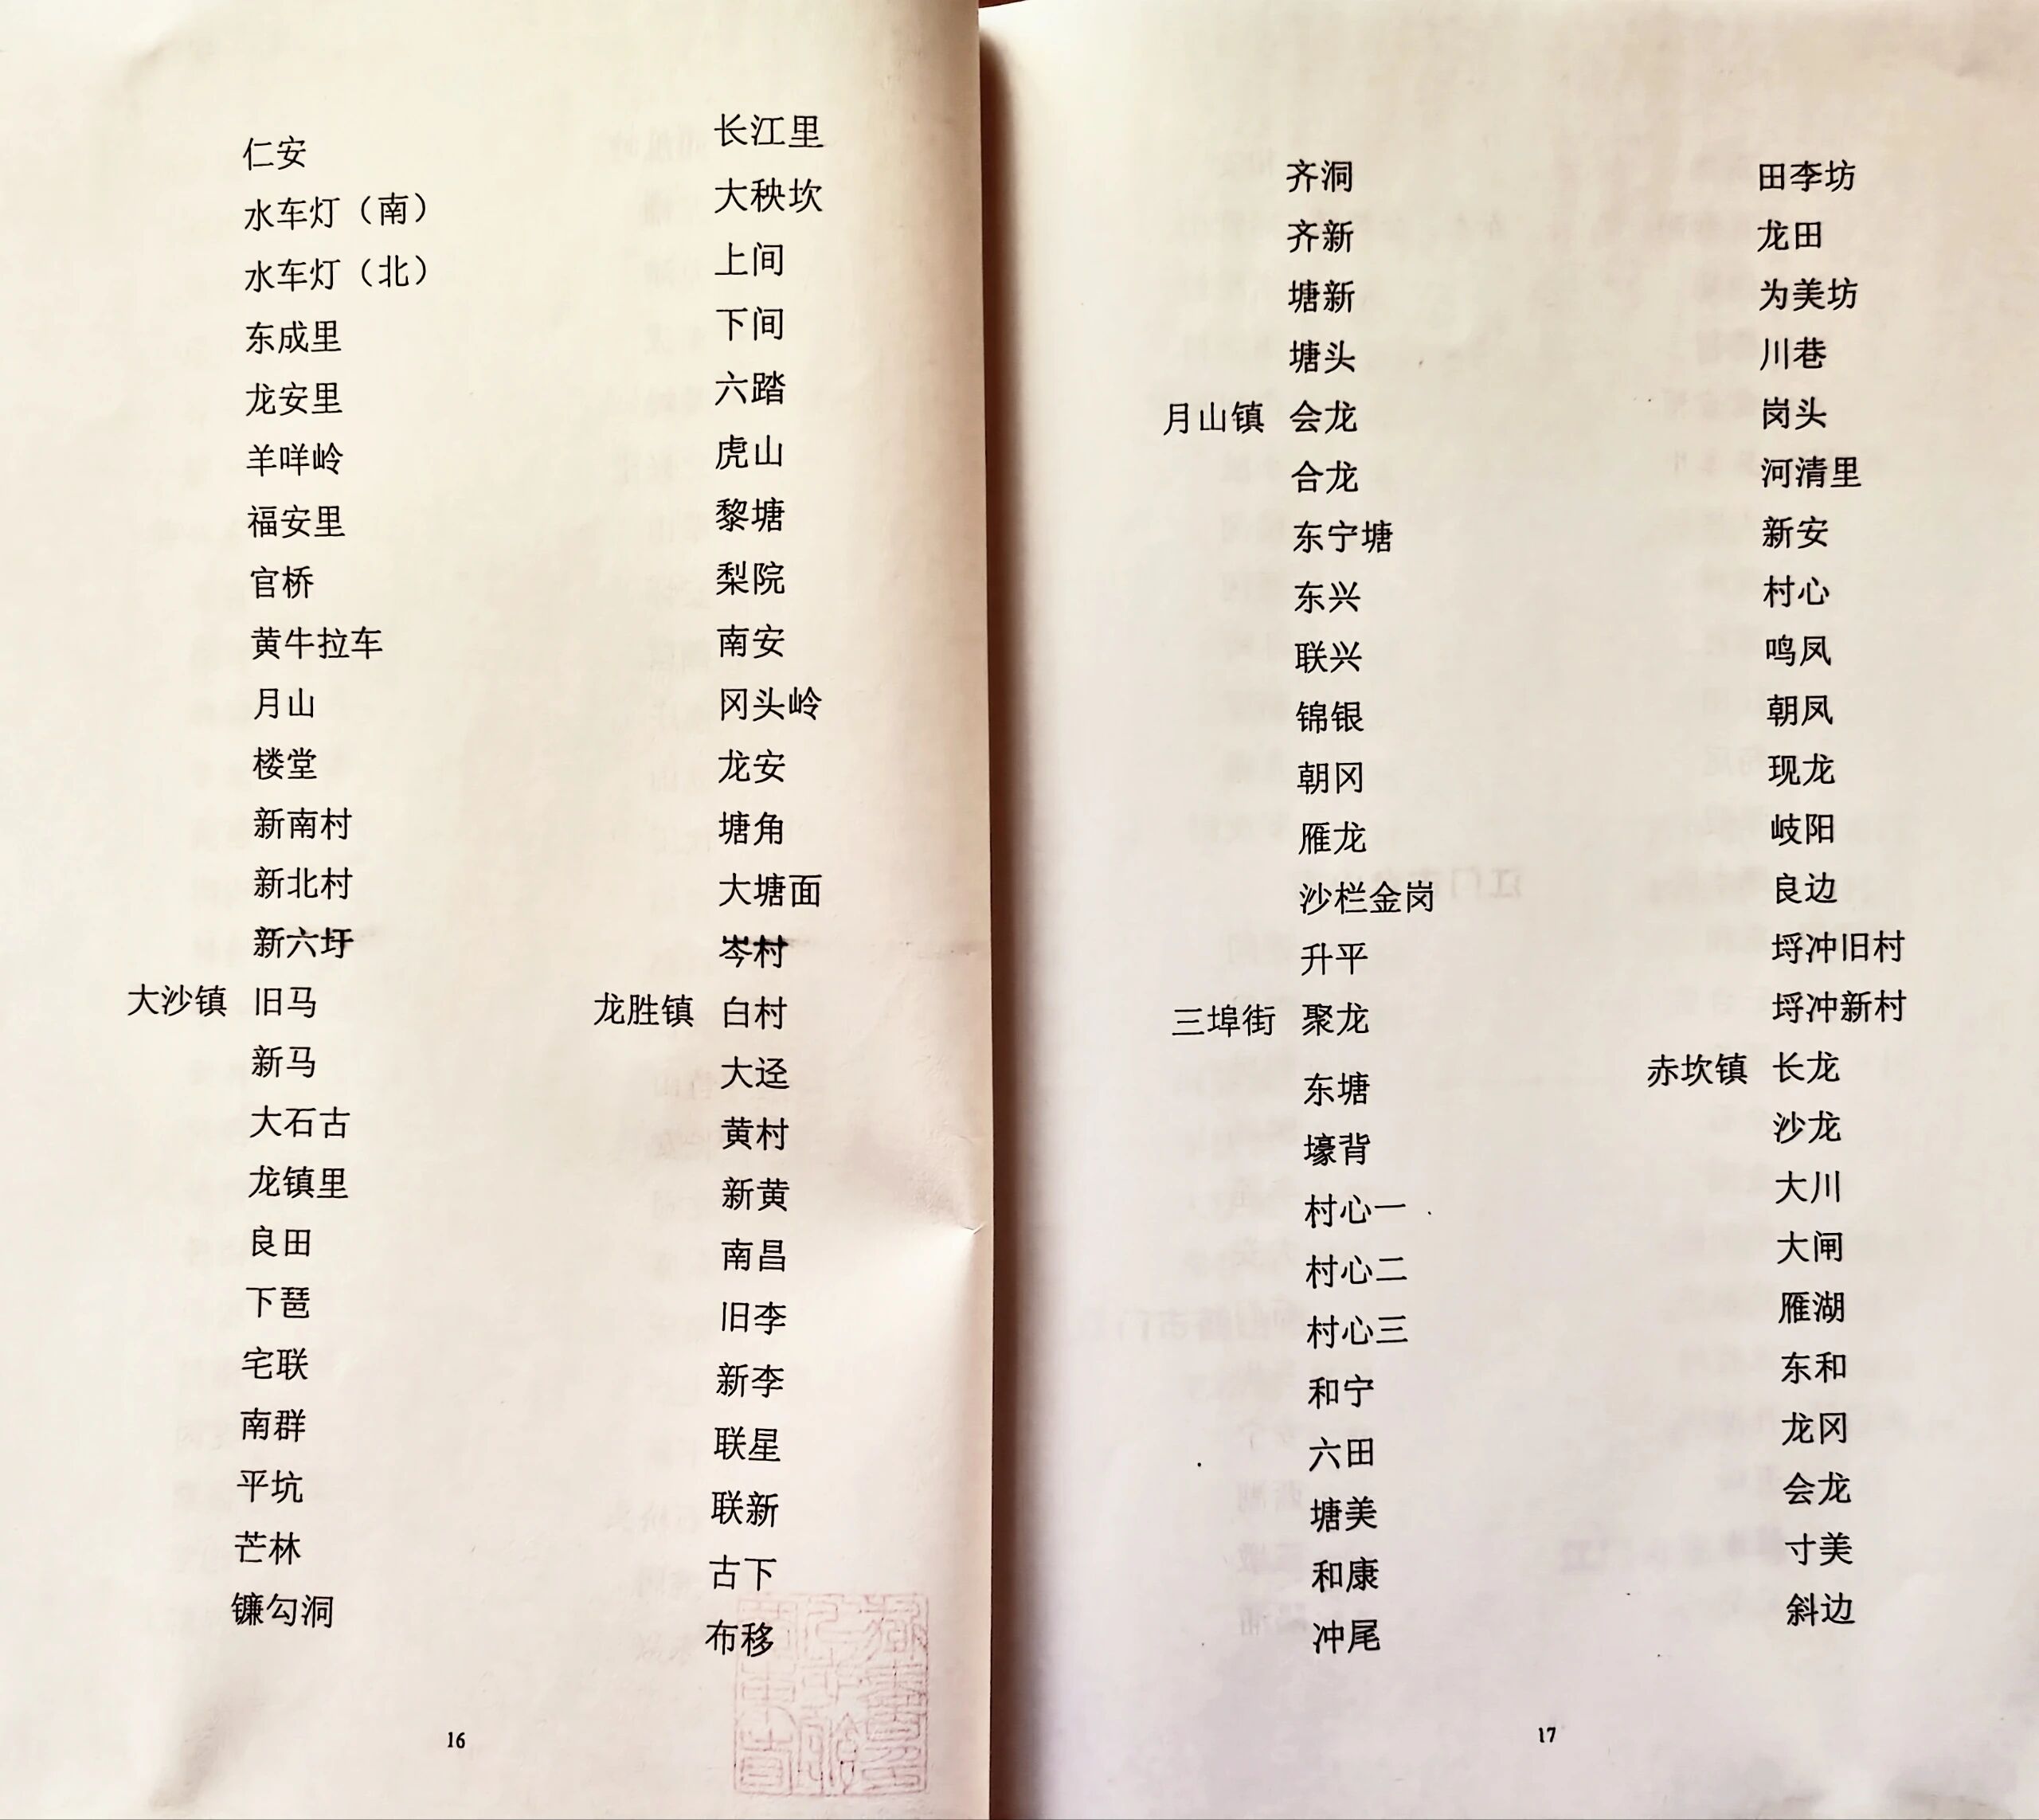 仁安
水车灯（南）
水车灯（北）
东成里
龙安里
羊咩岭
福安里
官桥
黄牛拉车
月山
楼堂
新南村
新北村
新六圩
大沙镇 旧马
新马
大石古
龙镇里
良田
下琶
宅联
南群
平坑
芒林
镰勾洞
长江里
大秧坎
上间
下间
六踏
虎山
黎塘
梨院
南安
冈头岭
龙安
塘角
大塘面
岑村
龙胜镇 白村
大迳
黄村
新黄
南昌
旧李
新李
联星
联新
古下
布移
16
齐洞
齐新
塘新
塘头
月山镇 会龙
合龙
东宁塘
东兴
联兴
锦银
朝冈
雁龙
沙栏金岗
升平
三埠街 聚龙
东塘
壕背
村心一
村心二
村心三
和宁
六田
塘美
和康
冲尾
田李坊
龙田
为美坊
川巷
岗头
河清里
新安
村心
鸣凤
朝凤
现龙
岐阳
良边
埒冲旧村
埒冲新村
赤坎镇 长龙
沙龙
大川
大闸
雁湖
东和
龙冈
会龙
寸美
斜边
17